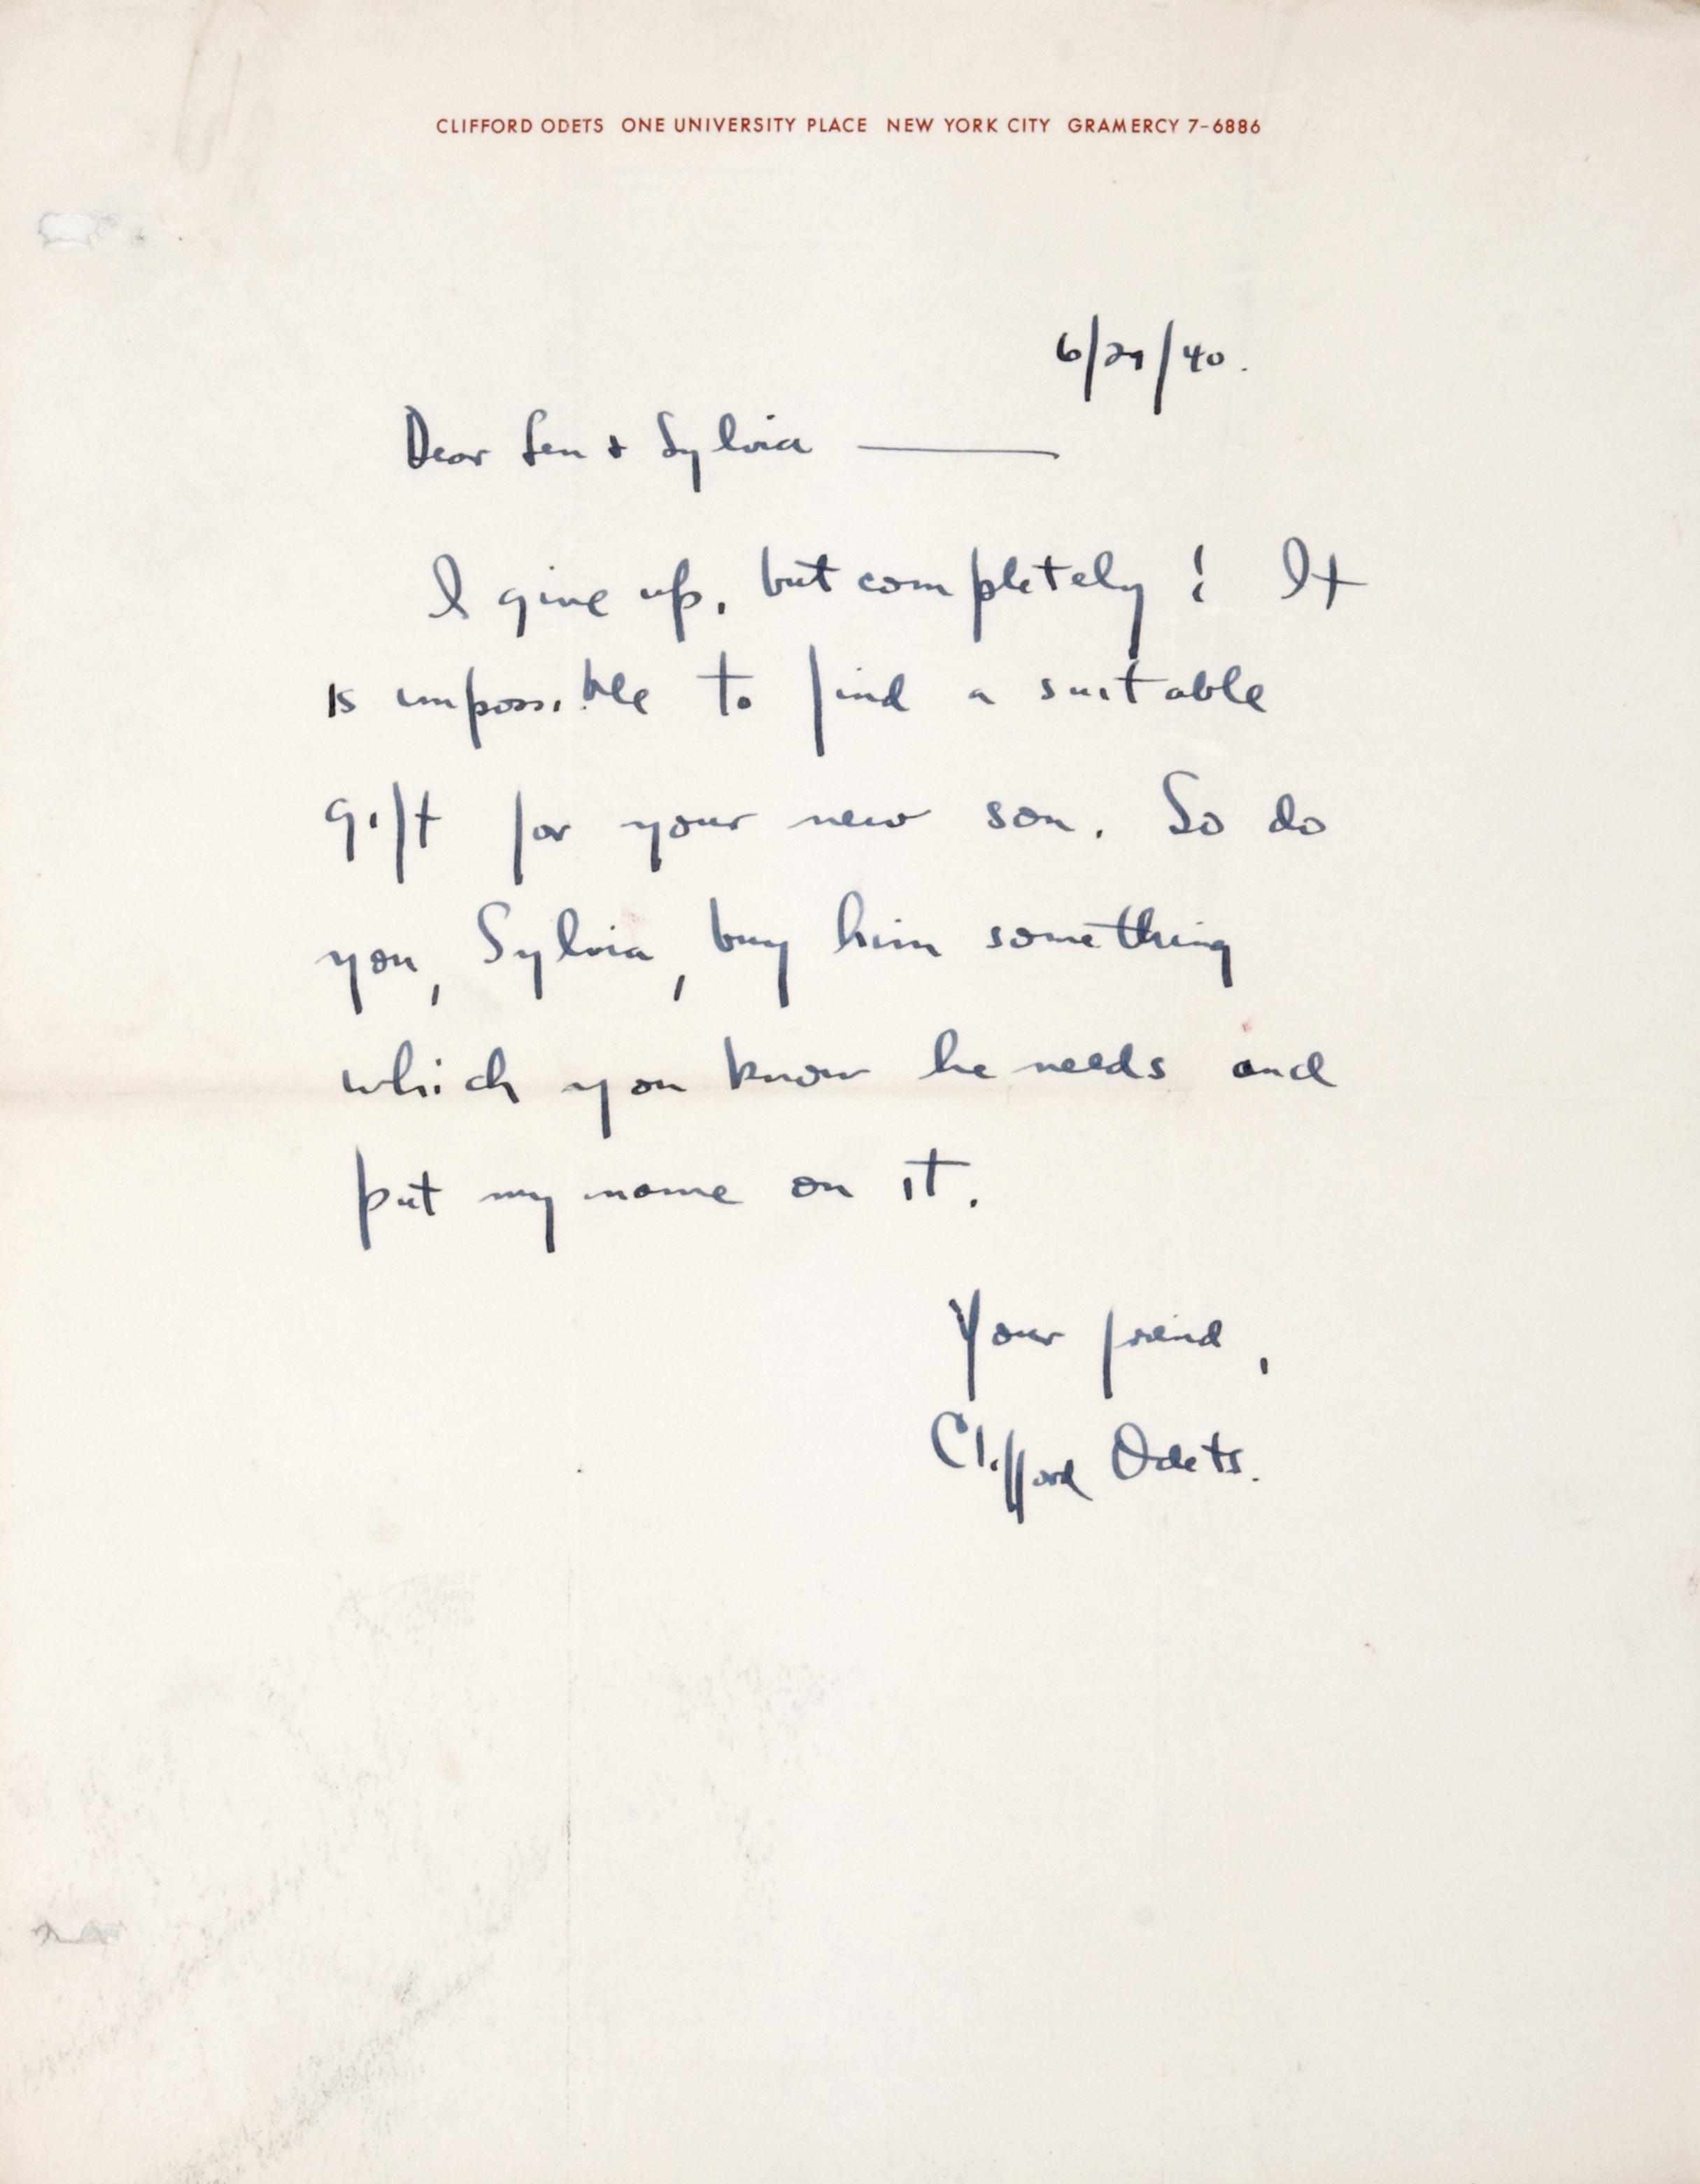 CLIFFORD ODETS ONE UNIVERSITY PLACE NEW YORK CITY GRAMERCY 7-6886
6/29/40.
Dear Len + Sylvia —
I give up, but completely! It
is impossible to find a suitable
gift for your new son. So do
you, Sylvia, buy him something
which you know he needs and
put my name on it.
Your friend,
Clifford Odets.